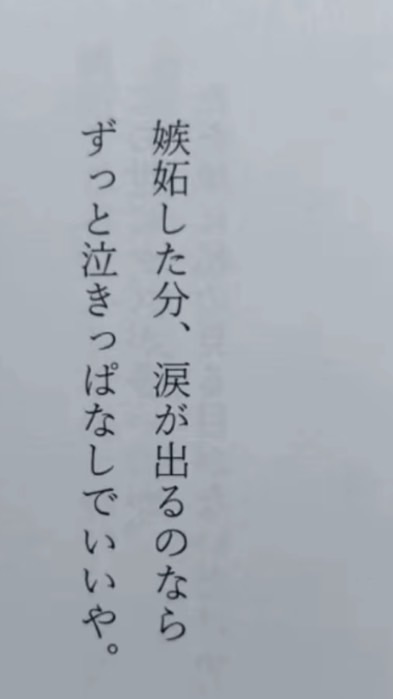 嫉妬した分、涙が出るのなら
ずっと泣きっぱなしでいいや。